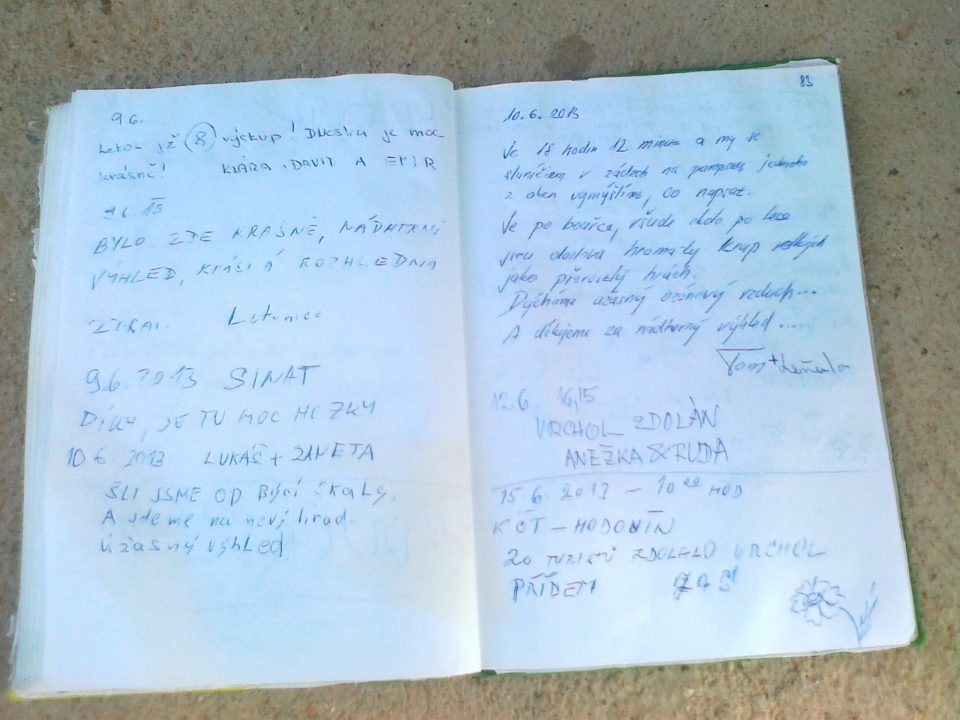 9.6.
Letos již 8 výstup! Dneska je moc
krásně! KLÁRA, DAVID A
9.6.13
BYLO ZDE KRÁSNĚ, NÁDHERNÝ
VÝHLED, KRÁSNÁ ROZHLEDNA
Letonice
9.6.2013 SINAT
DÍKY, JE TU MOC HEZKY
10.6.2013 LUKÁŠ + ŽANETA
ŠLI JSME OD BÝČÍ SKÁLY,
A jdeme na nový hrad
úžasný výhled
83
10.6.2013
Je 18 hodin 12 minut a my se
sluníčkem v zádech na parapetu jednoho
z oken vymýšlíme, co napsat.
Je po bouřce, všude okolo po lese
jsou doslova hromady krup velkých
jako přerostlý hrách.
Dýcháme úžasný ozónový vzduch...
A děkujeme za nádherný výhled.....
Tom +
12.6 16,15
VRCHOL ZDOLÁN
ANEŽKA & RUDA
15.6.2013 – 10 HOD
KČT – HODONÍN
20 TURISTŮ ZDOLALO VRCHOL
PŘÍDEM ZAS